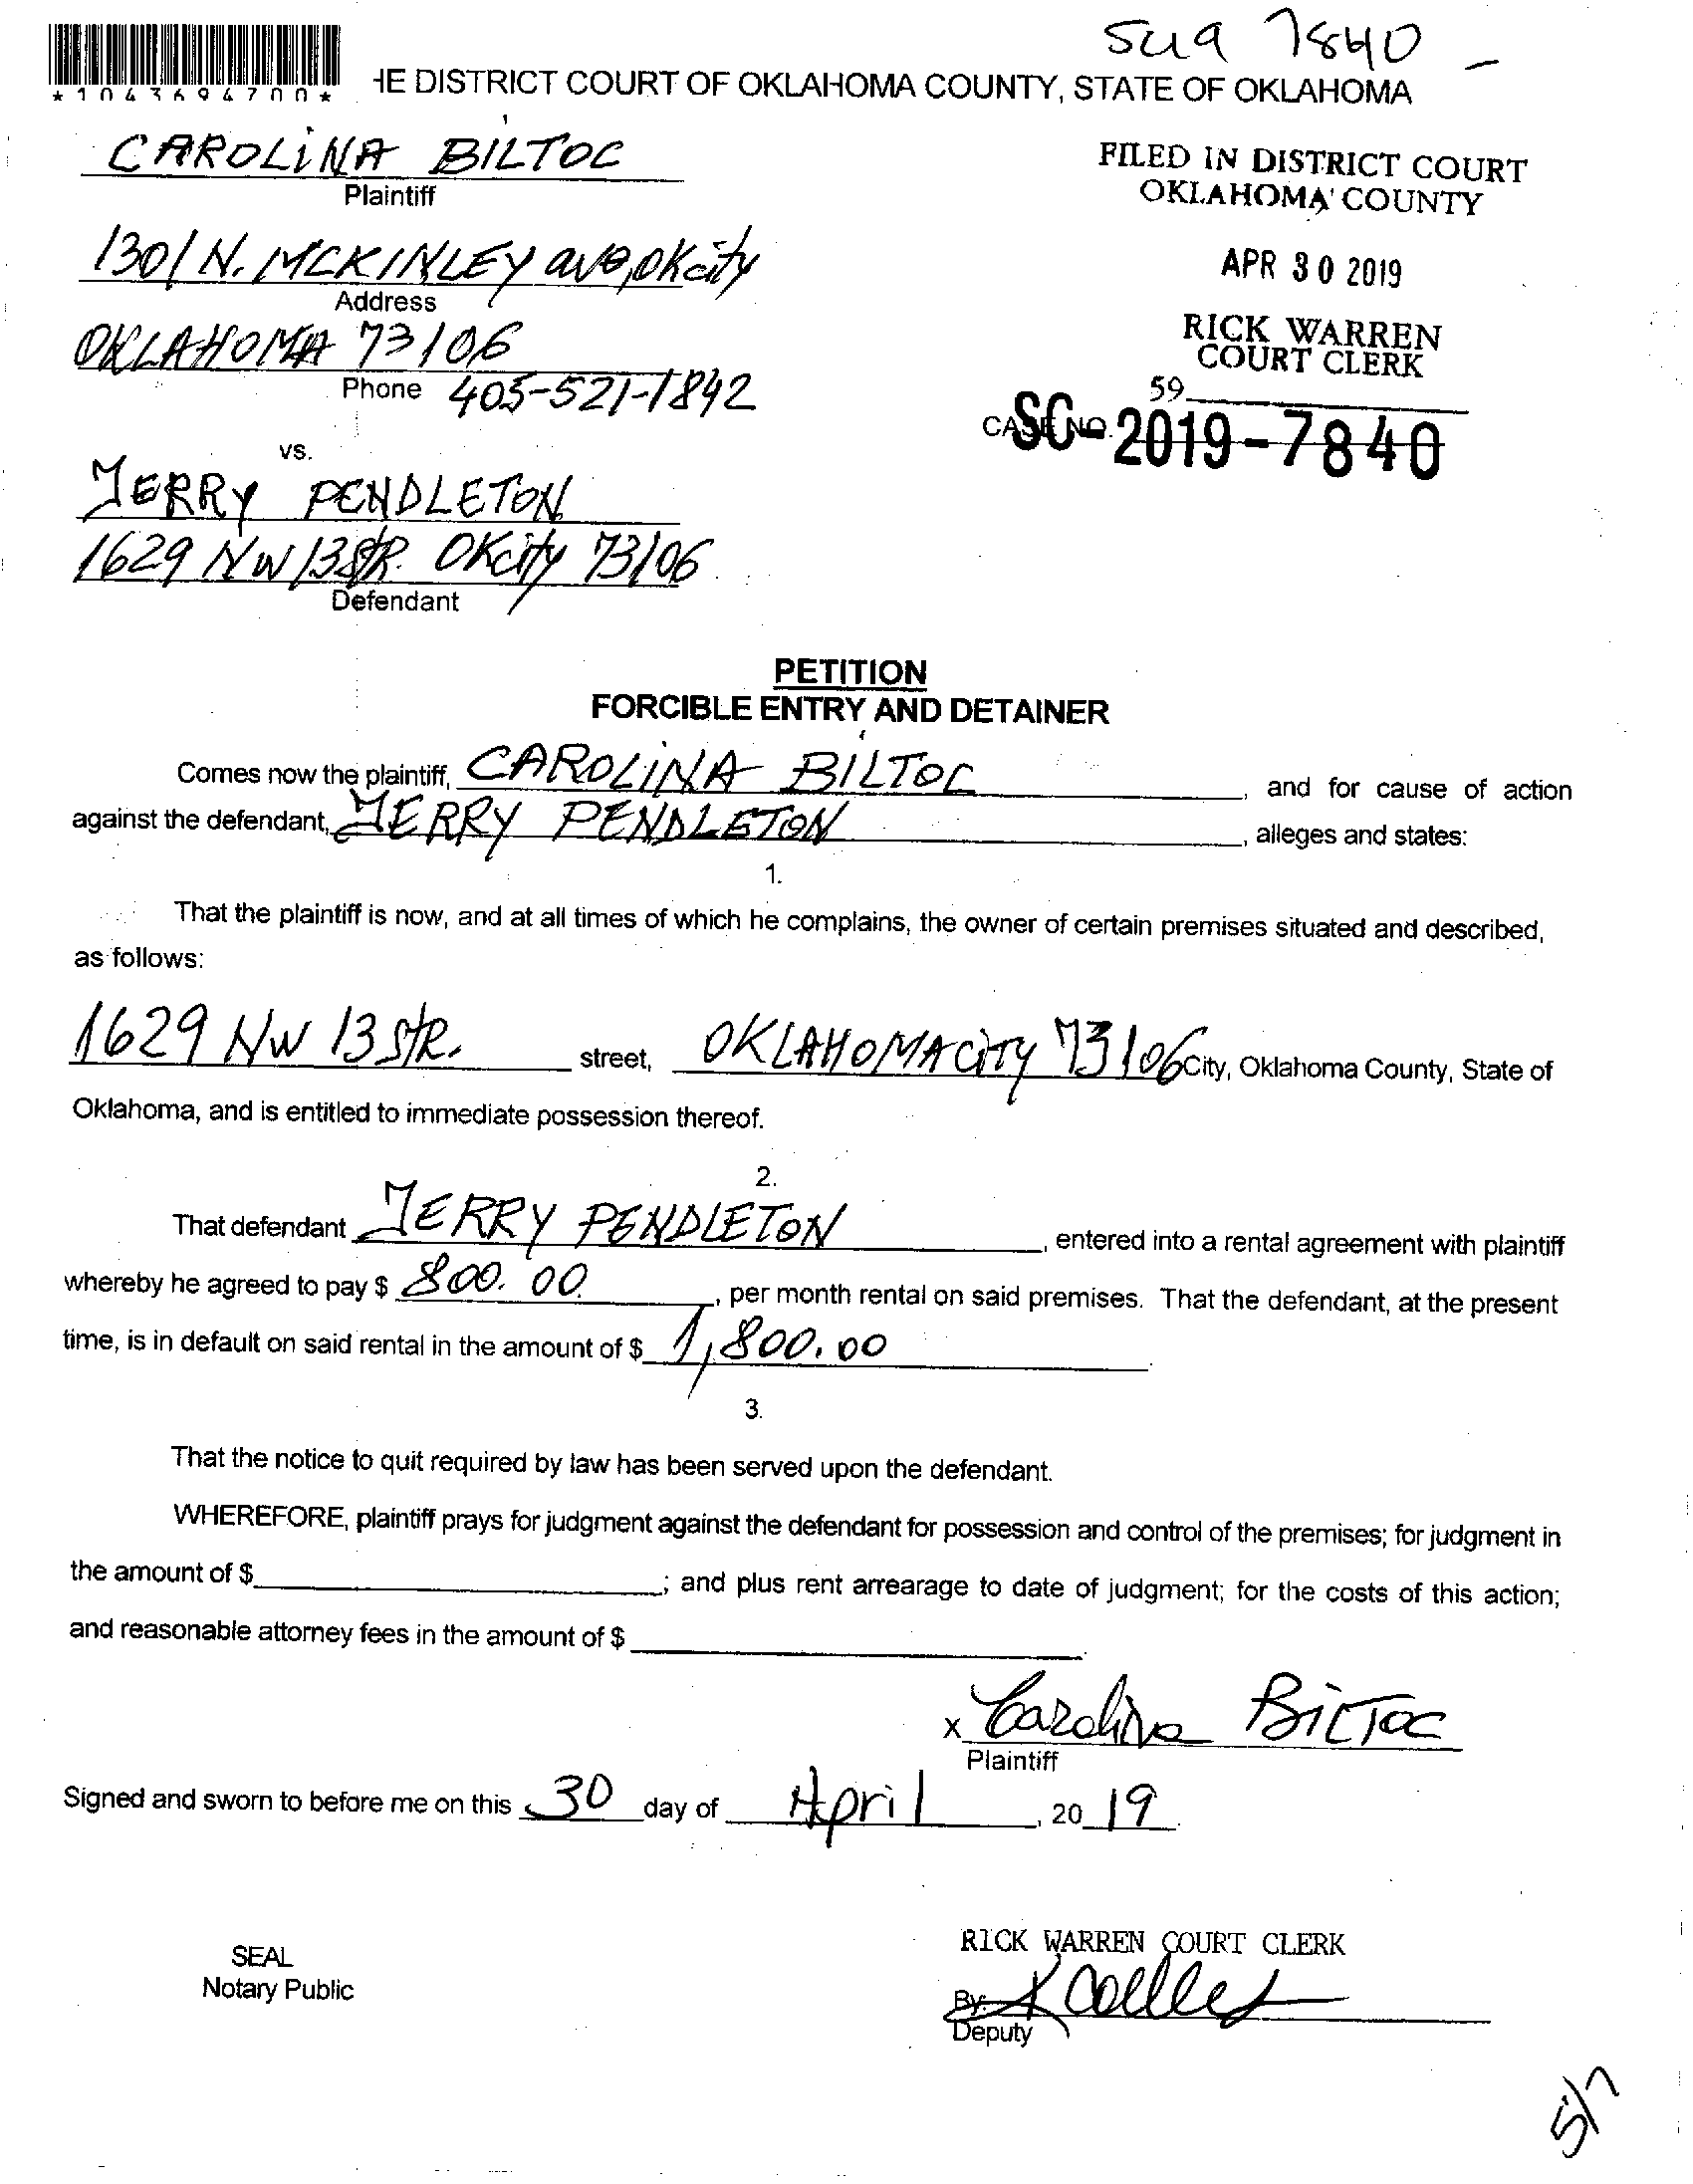 SC19 7840 -
*1043694700*
HE DISTRICT COURT OF OKLAHOMA COUNTY, STATE OF OKLAHOMA
CAROLINA BILTOC
Plaintiff
FILED IN DISTRICT COURT
OKLAHOMA COUNTY
1301 N. MCKINLEY ave, OKcity
Address
APR 30 2019
OKLAHOMA 73106
Phone 405-521-1842
RICK WARREN
COURT CLERK
59
CASE NO. SC-2019-7840
vs.
JERRY PENDLETON
1629 NW 13 STR. OKcity 73106
Defendant
PETITION
FORCIBLE ENTRY AND DETAINER
Comes now the plaintiff, CAROLINA BILTOC, and for cause of action
against the defendant, JERRY PENDLETON, alleges and states:
1.
That the plaintiff is now, and at all times of which he complains, the owner of certain premises situated and described,
as follows:
1629 NW 13 STR. street, OKLAHOMA CITY 73106 City, Oklahoma County, State of
Oklahoma, and is entitled to immediate possession thereof.
2.
That defendant JERRY PENDLETON, entered into a rental agreement with plaintiff
whereby he agreed to pay $ 800.00, per month rental on said premises. That the defendant, at the present
time, is in default on said rental in the amount of $ 1,800.00.
3.
That the notice to quit required by law has been served upon the defendant.
WHEREFORE, plaintiff prays for judgment against the defendant for possession and control of the premises; for judgment in
the amount of $ ; and plus rent arrearage to date of judgment; for the costs of this action;
and reasonable attorney fees in the amount of $ .
x Carolina Biltoc
Plaintiff
Signed and sworn to before me on this 30 day of April, 2019.
SEAL
Notary Public
RICK WARREN COURT CLERK
By:
Deputy
5/7